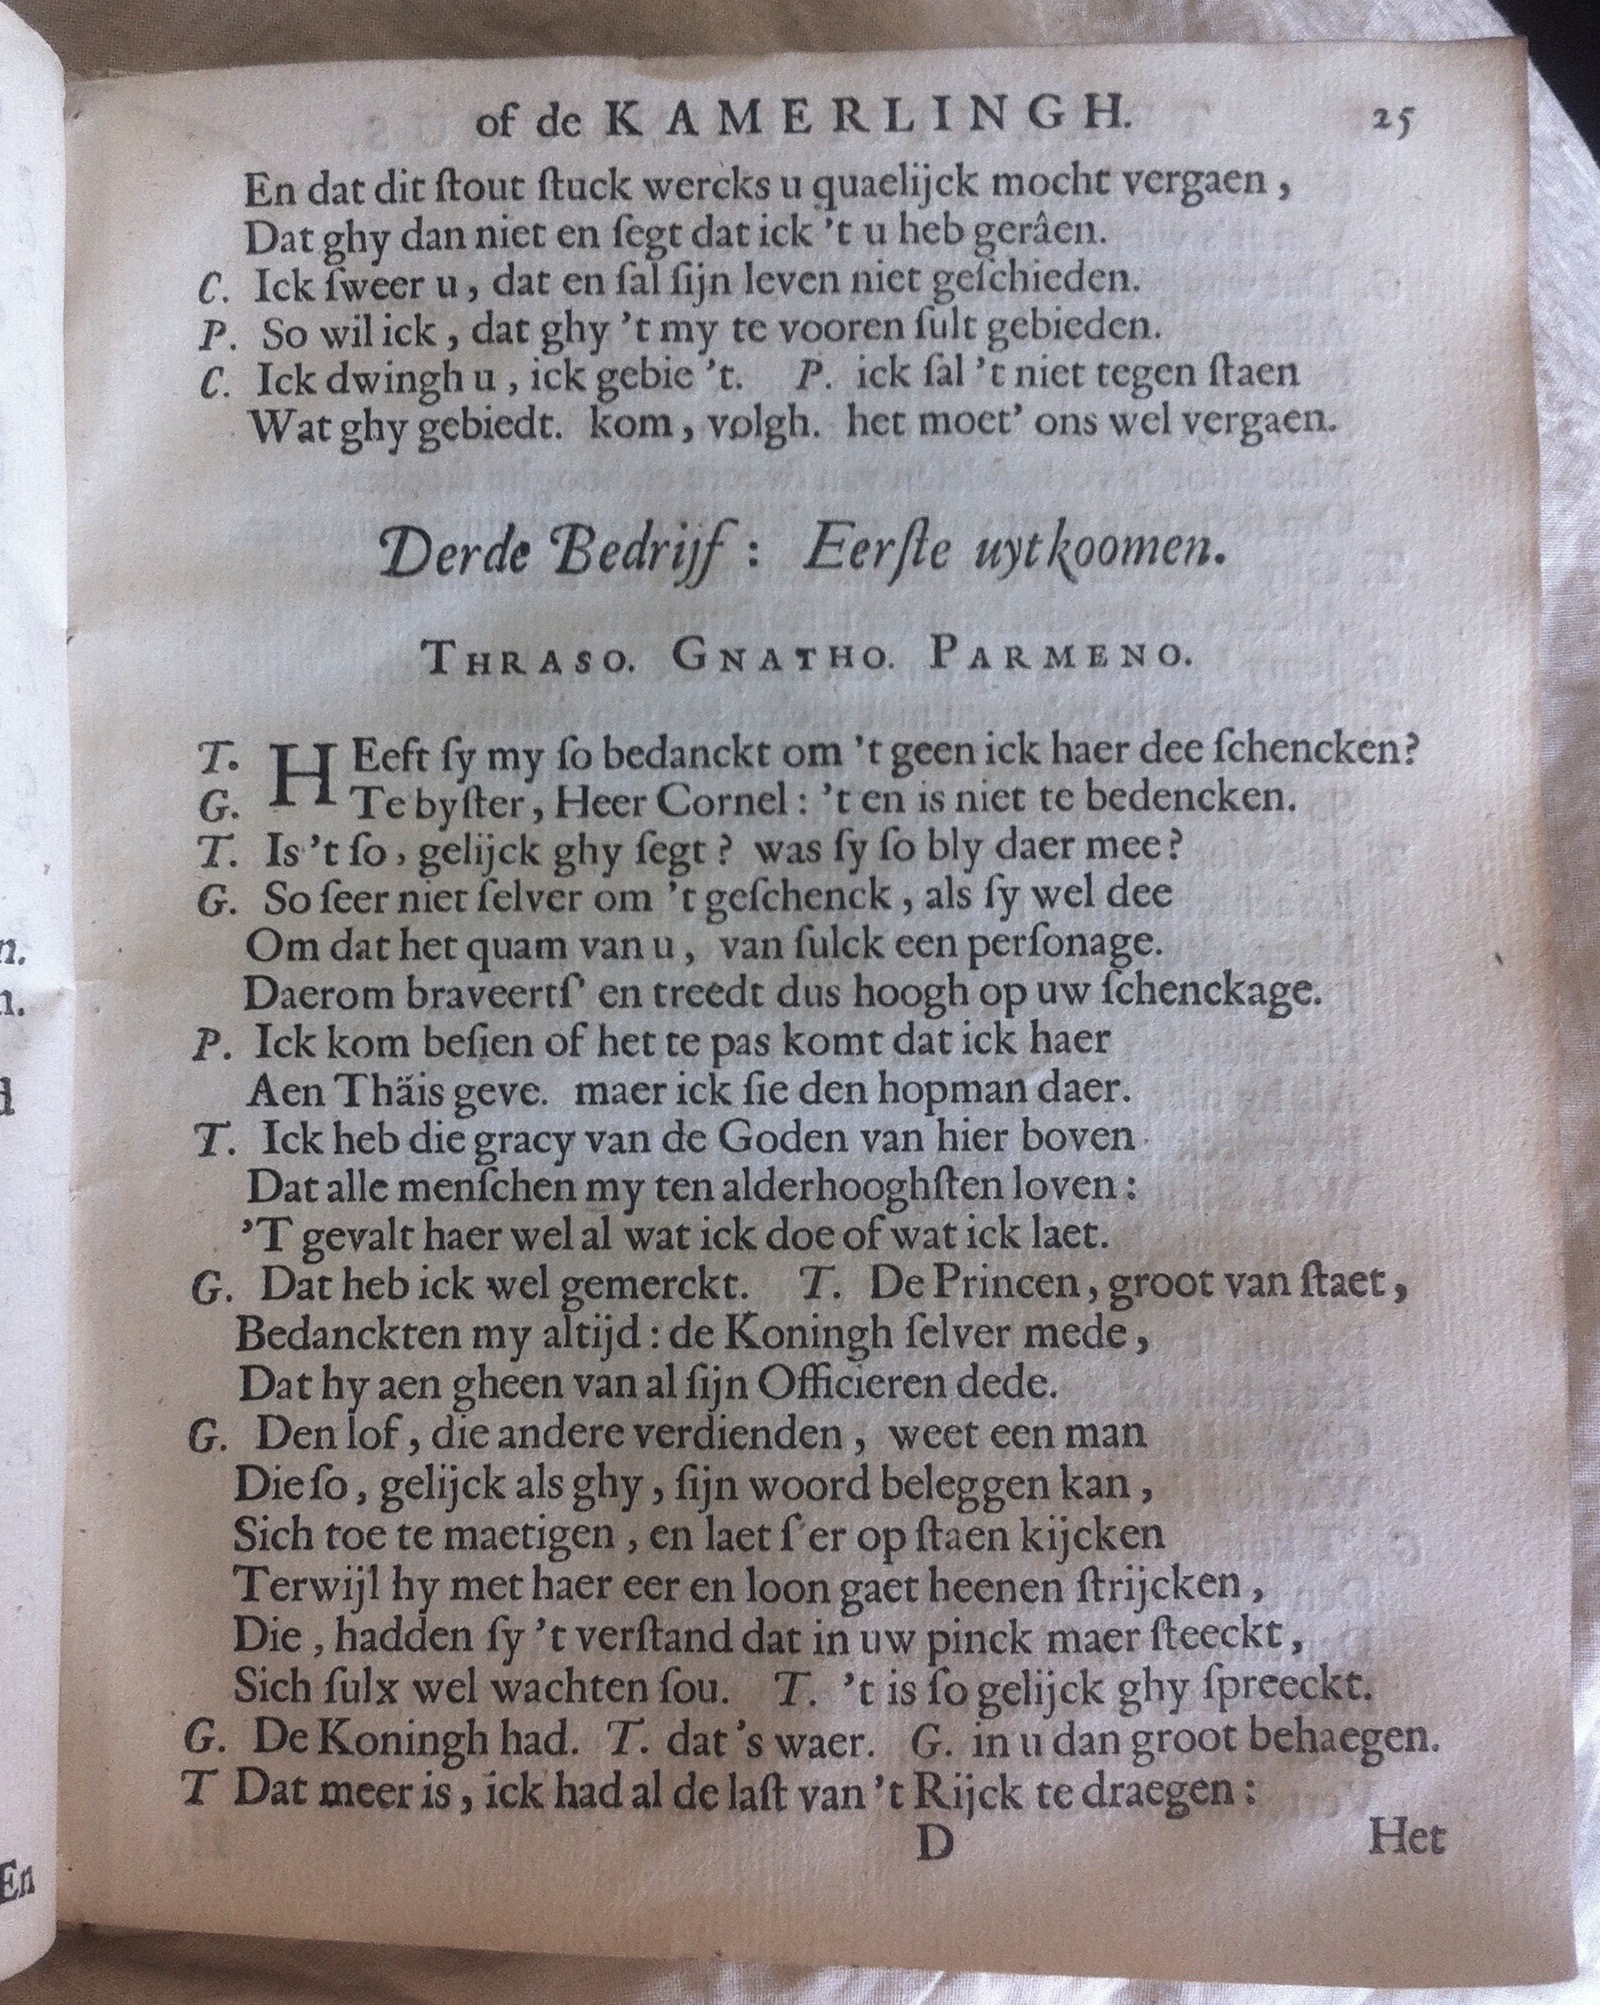 of de KAMERLINGH. 25
En dat dit ſtout ſtuck wercks u quaelijck mocht vergaen,
Dat ghy dan niet en ſegt dat ick 't u heb gerâen.
C. Ick ſweer u, dat en ſal ſijn leven niet geſchieden.
P. So wil ick, dat ghy 't my te vooren ſult gebieden.
C. Ick dwingh u, ick gebie 't. P. ick ſal 't niet tegen ſtaen
Wat ghy gebiedt. kom, volgh. het moet' ons wel vergaen.
Derde Bedrijf: Eerſte uytkoomen.
THRASO. GNATHO. PARMENO.
T. HEeft ſy my ſo bedanckt om 't geen ick haer dee ſchencken?
G. Te byſter, Heer Cornel: 't en is niet te bedencken.
T. Is 't ſo, gelijck ghy ſegt? was ſy ſo bly daer mee?
G. So ſeer niet ſelver om 't geſchenck, als ſy wel dee
Om dat het quam van u, van ſulck een perſonage.
Daerom braveertſ' en treedt dus hoogh op uw ſchenckage.
P. Ick kom beſien of het te pas komt dat ick haer
Aen Thäis geve. maer ick ſie den hopman daer.
T. Ick heb die gracy van de Goden van hier boven
Dat alle menſchen my ten alderhooghſten loven:
'T gevalt haer wel al wat ick doe of wat ick laet.
G. Dat heb ick wel gemerckt. T. De Princen, groot van ſtaet,
Bedanckten my altijd: de Koningh ſelver mede,
Dat hy aen gheen van al ſijn Officieren dede.
G. Den lof, die andere verdienden, weet een man
Die ſo, gelijck als ghy, ſijn woord beleggen kan,
Sich toe te maetigen, en laet ſ'er op ſtaen kijcken
Terwijl hy met haer eer en loon gaet heenen ſtrijcken,
Die, hadden ſy 't verſtand dat in uw pinck maer ſteeckt,
Sich ſulx wel wachten ſou. T. 't is ſo gelijck ghy ſpreeckt.
G. De Koningh had. T. dat 's waer. G. in u dan groot behaegen.
T Dat meer is, ick had al de laſt van 't Rijck te draegen:
D Het
n.
n.
d
En